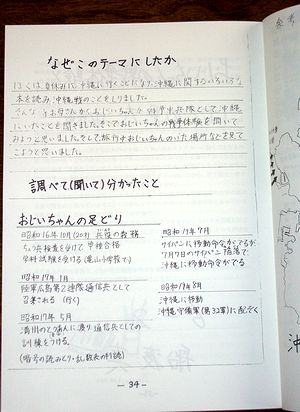 なぜこのテーマにしたか
ぼくは夏休みに、沖縄に行くことになり、沖縄に関するいろいろな
本を読み沖縄戦のことをしりました。
そんな中お母さんからおじいちゃんが
沖縄
にいたことを聞きました。そこでおじいちゃんの戦争体験を聞いて
みようと思いました。そして旅行中おじいちゃんのいた場所などを見て
こようと思いました。
調べて(聞いて)分かったこと
おじいちゃんの足どり
昭和16年10月(20才) 兵役の義務
ちょう兵検査を受けて甲種合格
学科試験を受ける
昭和17年1月
陸軍広島第2部隊通信兵として
召集される (行く)
昭和17年5月
満州の
に渡り通信兵としての
訓練をうける。
(暗号の読みとり・乱数表の判読)
昭和19年7月
サイパンに移動命令がでるが
7月7日のサイパン陥落で
沖縄に移動命令がでる
昭和19年8月
沖縄に移動
沖縄守備軍(第32軍)に配ぞく
— 34 —
沖